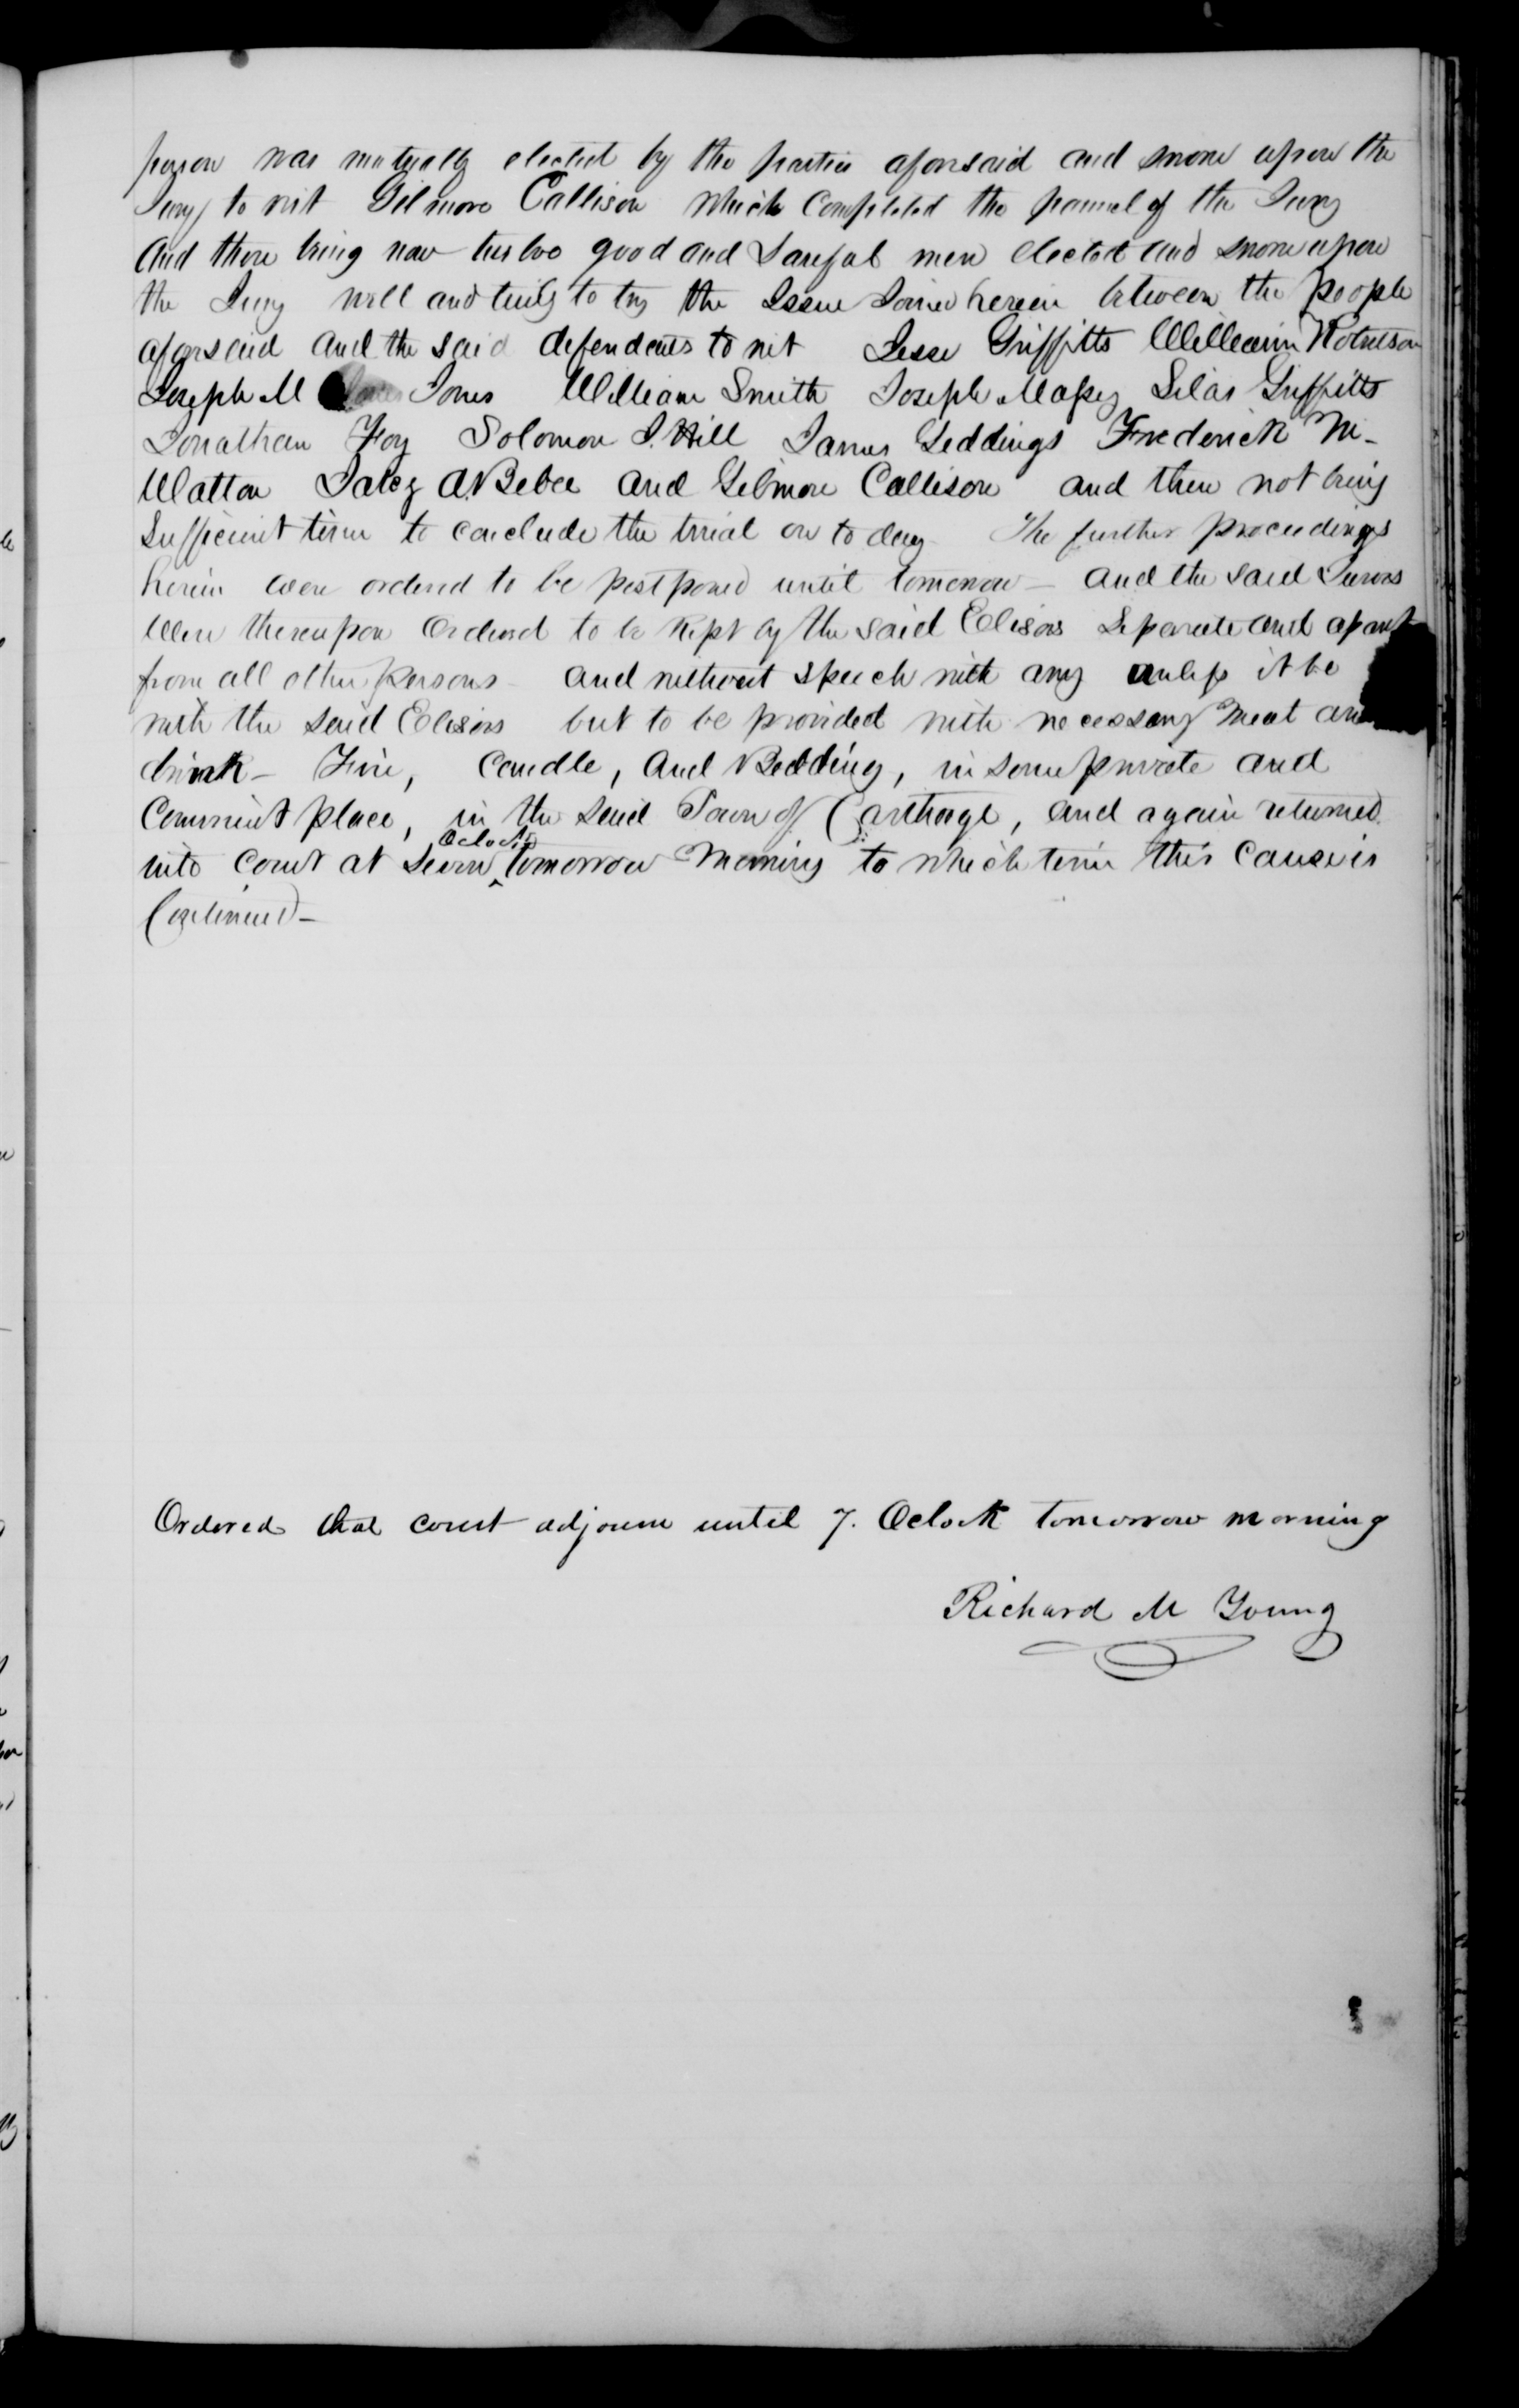 person was mutually elected by the parties aforesaid and sworn upon the
Jury to wit Gilmore Callison which Completed the pannel of the Jury
And there being now twelve good and Lawful men elected and sworn upon
the Jury well and truly to try the Issue Joined herein between the People
aforesaid and the said defendants to wit Jesse Griffitts William Robertson
Joseph M Jones William Smith Joseph Massey Silas Griffitts
Jonathan Foy Solomon J. Hill James Geddings Frederick M-
Walton Jabez A. Bebee and Gilmore Callison and there not being
Sufficient time to conclude the trial on to day The further proceedings
herein were ordered to be postponed until tomorrow — and the said Jurors
Were thereupon Ordered to be kept by the said Elisors Separate and apart
from all other persons and without speech with any unless it be
with the said Elisors but to be provided with necessary Meat and
drink – Fire, Candle, And Bedding, in some private and
Convenient place, in the said Town of Carthage, and again returned
into Court at Seven Oclock tomorrow Morning to which time this Cause is
Continued –
Ordered that court adjourn until 7. Oclock tomorrow morning
Richard M Young